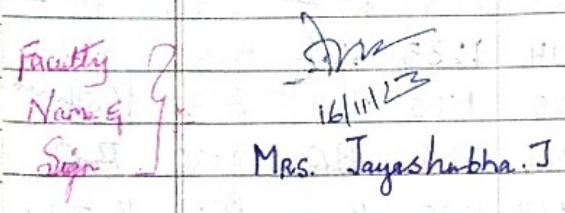 Faculty
Name &
Sign
16/11/23
Mrs. Jayashubha. J